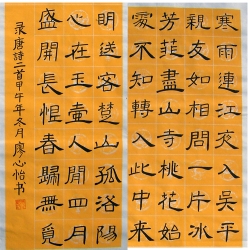 寒雨連江夜入吳平
明送客楚山孤洛陽
親友如相問一片冰
心在玉壺人間四月
芳菲盡山寺桃花始
盛開長恨春歸無覓
處不知轉入此中來
录唐詩二首甲午年冬月廖心怡书